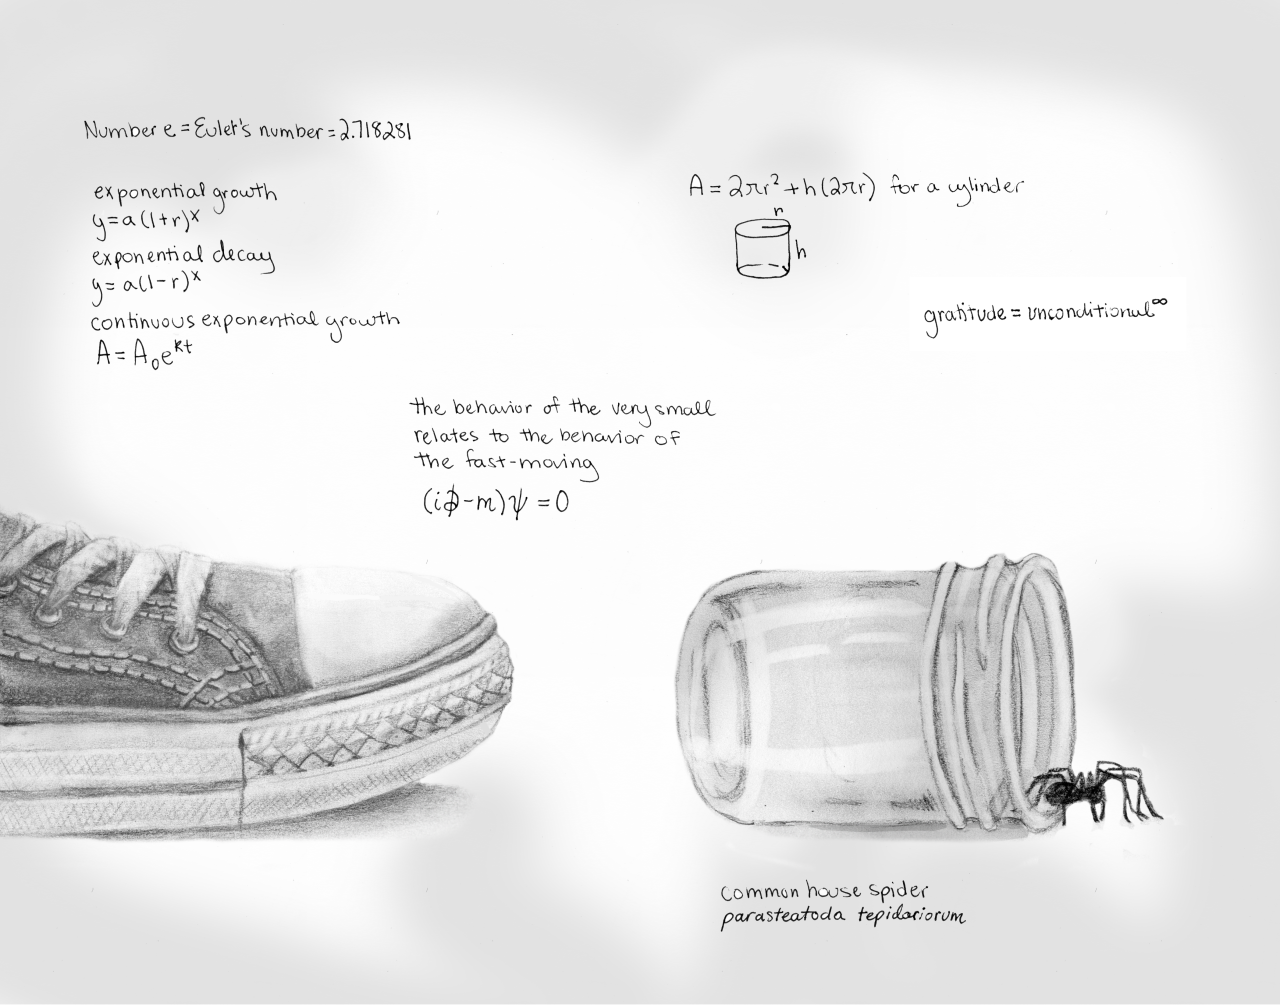 Number e = Euler's number = 2.718281
exponential growth
y=a(1+r)^x
exponential decay
y=a(1-r)^x
continuous exponential growth
A=A₀e^kt
A=2πr²+h(2πr) for a cylinder
r
h
gratitude = unconditional^∞
the behavior of the very small
relates to the behavior of
the fast-moving
(i∂̸-m)ψ=0
common house spider
parasteatoda tepidariorum